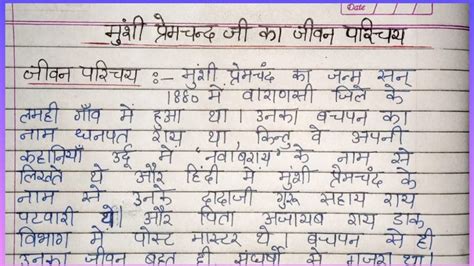 Date
मुंशी प्रेमचन्द जी का जीवन परिचय
जीवन परिचय :- मुंशी प्रेमचंद का जन्म सन्
1880 में वाराणसी जिले के
लमही गाँव में हुआ था। उनका बचपन का
नाम धनपत राय था, किन्तु वे अपनी
कहानियाँ उर्दू में "नवाबराय" के नाम से
लिखते थे और हिंदी में मुंशी प्रेमचंद के
नाम से उनके दादाजी गुरू सहाय राय
पटवारी थे। और पिता अजायब राय डाक
विभाग में पोस्ट मास्टर थे। बचपन से ही
उनका जीवन बहुत ही संघर्षो से गुजरा था।